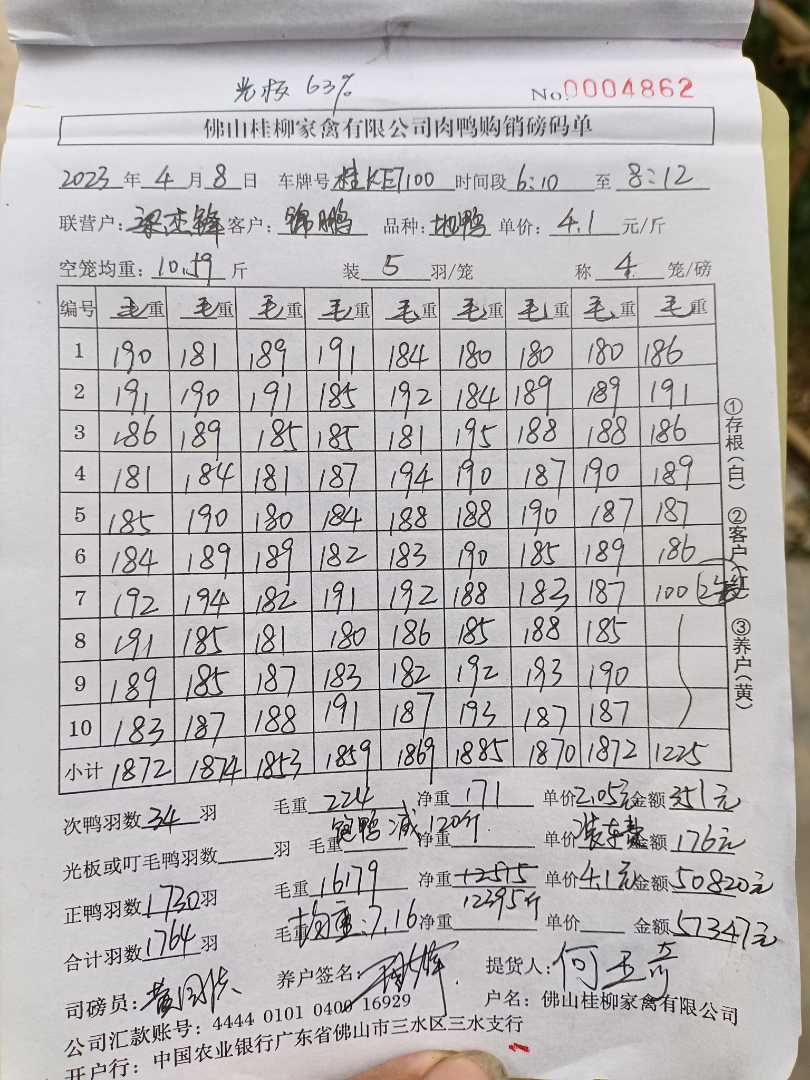 光板 63%
No.0004862
佛山桂柳家禽有限公司肉鸭购销磅码单
2023 年 4 月 8 日 车牌号 桂KE7100 时间段 6:10 至 8:12
联营户: 梁杰锋 客户: 锦鹏 品种: 地鸭 单价: 4.1 元/斤
空笼均重: 10.59 斤 装 5 羽/笼 称 4 笼/磅
编号 毛重 毛重 毛重 毛重 毛重 毛重 毛重 毛重 毛重
1 190 181 189 191 184 180 180 180 186
2 191 190 191 185 192 184 189 189 191
3 186 189 185 185 181 195 188 188 186
4 181 184 181 187 194 190 187 190 189
5 185 190 180 184 188 188 190 187 187
6 184 189 189 182 183 190 185 189 186
7 192 194 182 191 192 188 183 187 100
8 191 185 181 180 186 185 188 185
9 189 185 187 183 182 192 193 190
10 183 187 188 191 187 193 187 187
小计 1872 1874 1853 1859 1869 1885 1870 1872 1225
①存根(白) ②客户(红) ③养户(黄)
次鸭羽数 34 羽 毛重 224 净重 171 单价 2.05元 金额 351元
光板或叮毛鸭羽数 羽 毛重 饱鸭减120斤 净重 装车费 金额 176元
正鸭羽数 1730 羽 毛重 16179 净重 12515 单价 4.1元 金额 50820元
12395斤
合计羽数 1764 羽 毛重 均重:7.16 净重 单价 金额 51347元
司磅员: 养户签名: 提货人: 何
公司汇款账号: 4444 0101 0400 16929 户名: 佛山桂柳家禽有限公司
开户行: 中国农业银行广东省佛山市三水区三水支行